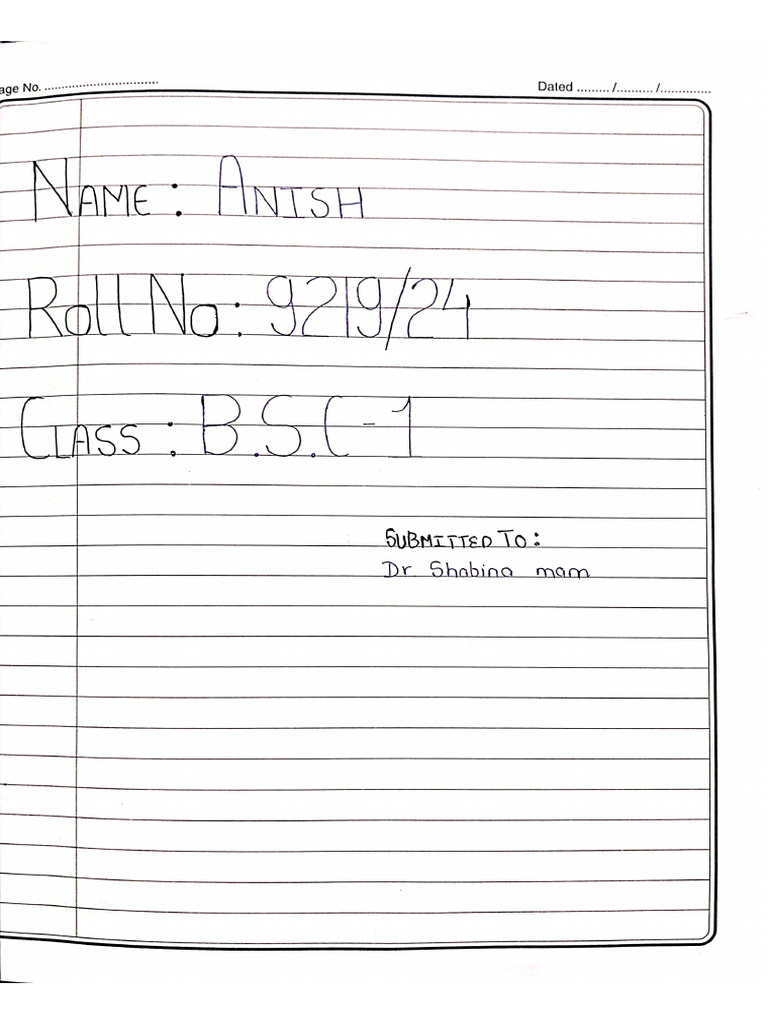 age No. ................................ Dated ........./........../..............
NAME : ANISH
Roll No : 9219/24
CLASS : B.S.C-1
SUBMITTED TO :
Dr Shabina mam